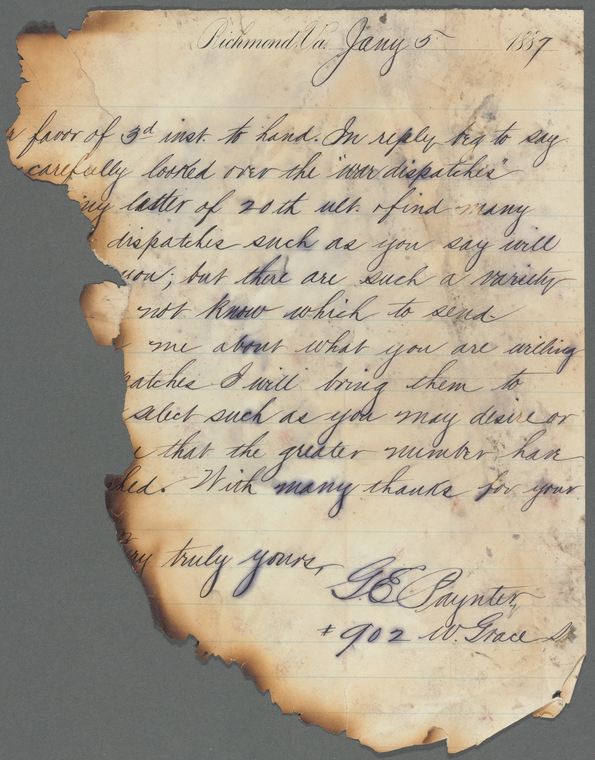 Richmond, Va. Jany 5 1887
r favor of 3d inst. to hand. In reply beg to say
carefully looked over the "war dispatches"
ing letter of 20th ult. & find many
dispatches such as you say will
you; but there are such a variety
not know which to send
me about what you are willing
patches I will bring them to
select such as you may desire or
that the greater number have
hed. With many thanks for your
ry truly yours,
G.E. Paynter,
# 902 W. Grace St